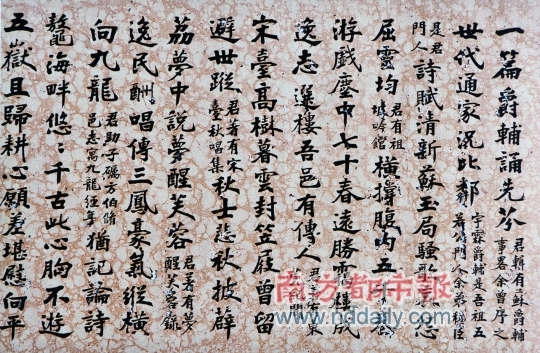 一篇爵輔誦先芬君輯有蘇爵輔事畧余曾序之
世代通家況比鄰宇霖爵輔是吾祖五門人余弟
是君門人詩賦清新蘇玉局騷
屈靈均君有祖坡吟館橫撐腹內五千
游戲塵中七十春遠勝樓成
逸志選樓吾邑有傳人
宋臺高樹暮雲封笠屐曾留
避世蹤君著有宋臺秋唱集秋士悲秋披薜
荔夢中說夢醒芙蓉君著有夢醒芙蓉錄
逸民酬唱傳三鳳豪氣縱橫
向九龍君助子礪方伯脩邑志寓九龍經年猶記論詩
鼇海畔悠悠千古此心胸不遊
五嶽且歸耕心願差堪慰向平
南方都市報
www.nddaily.com